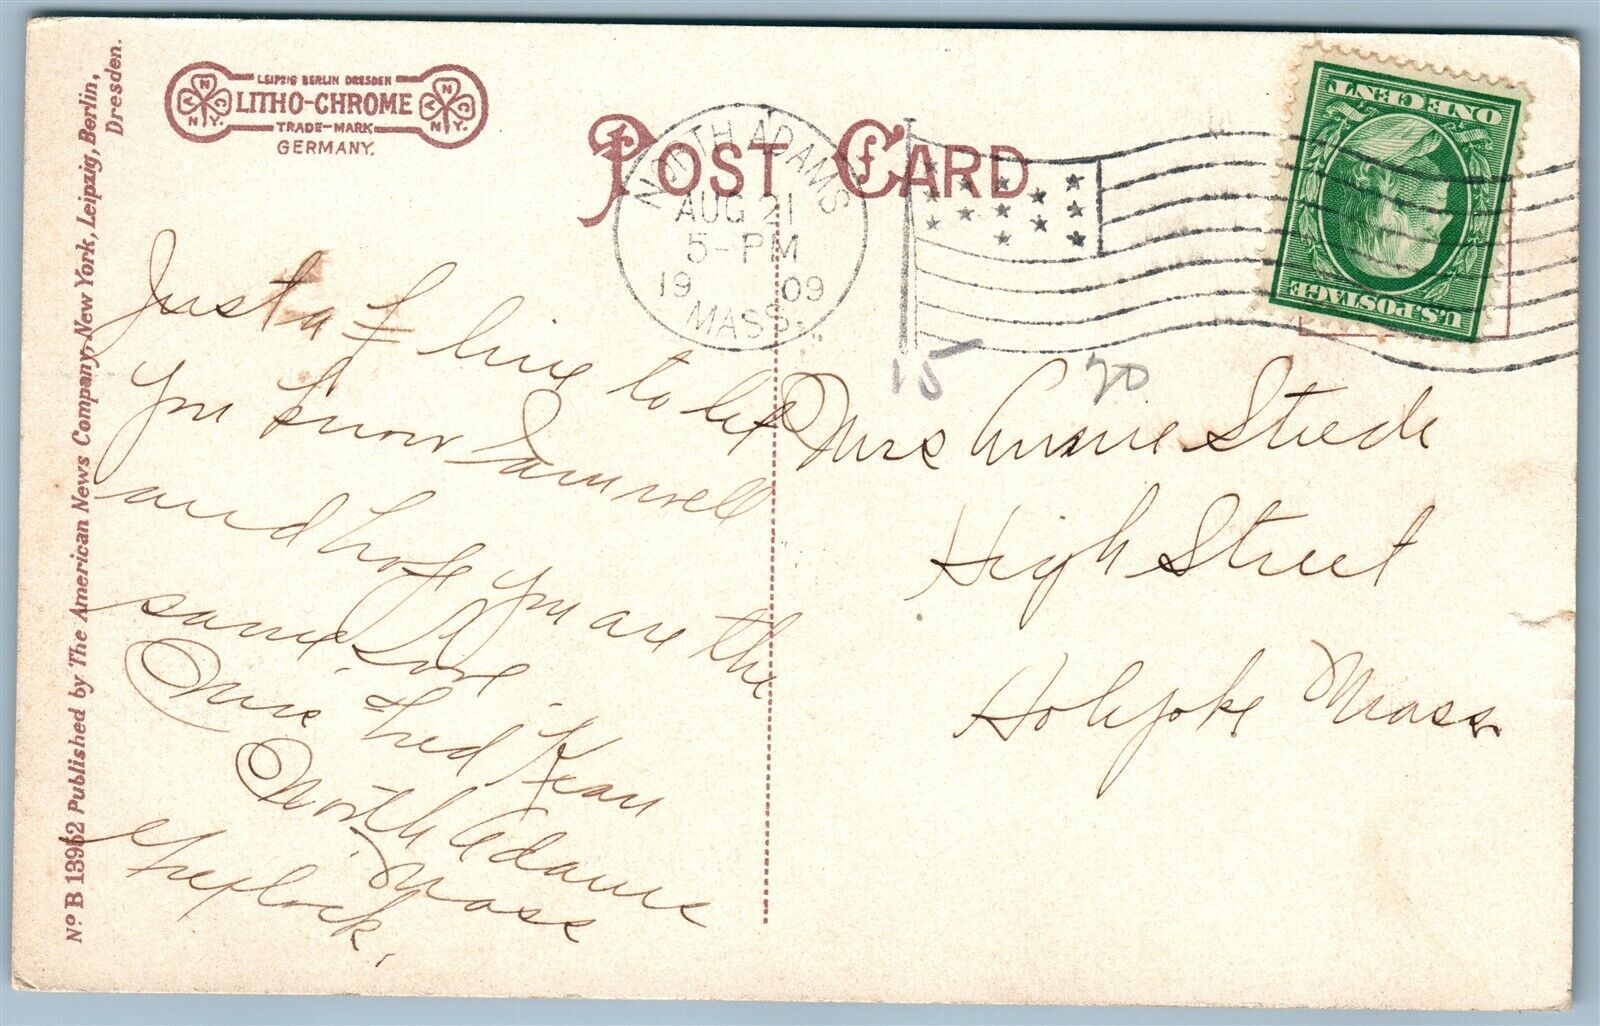 LEIPZIG BERLIN DRESDEN
LITHO-CHROME
TRADE-MARK
GERMANY.
A N C N.Y.
A N C N.Y.
POST CARD
NORTH ADAMS
AUG 21
5-PM
1909
MASS.
ONE CENT
U.S. POSTAGE
15 20
Just a line to let
you know I am well
and hope you are the
same. Love
Mrs Fred Kean
North Adams
Mass
Mrs Annie Steede
High Street
Holyoke Mass
No B 13952 Published by The American News Company, New York, Leipzig, Berlin,
Dresden.